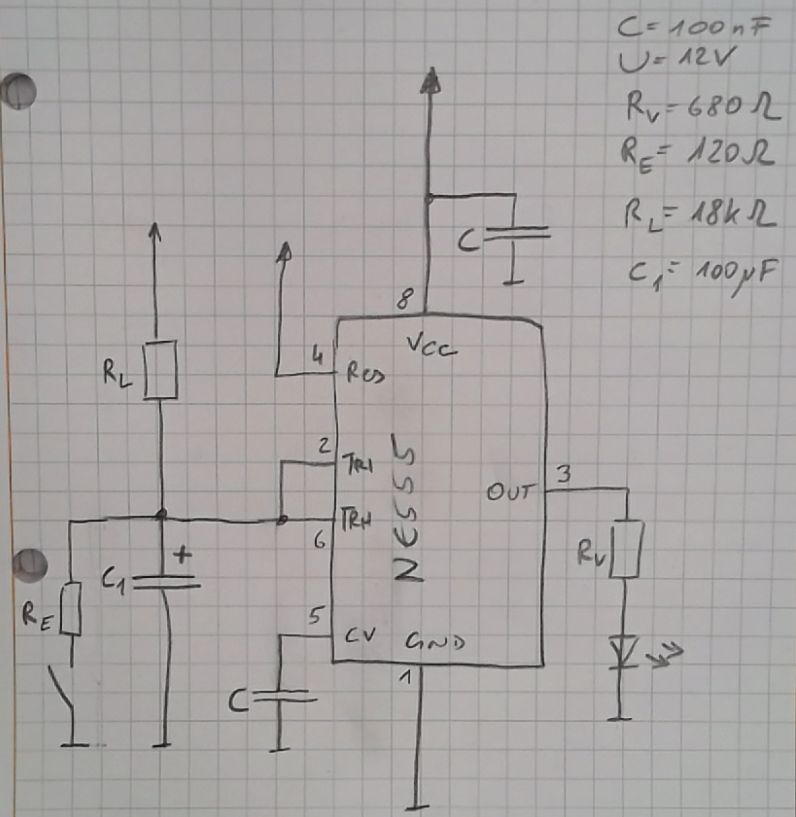 C = 100nF
U = 12V
R_V = 680Ω
R_E = 120Ω
R_L = 18kΩ
C_1 = 100µF
C
8
VCC
4
RES
R_L
2
TRI
OUT
3
TRH
6
NE555
+
C_1
R_V
R_E
5
CV
GND
1
C